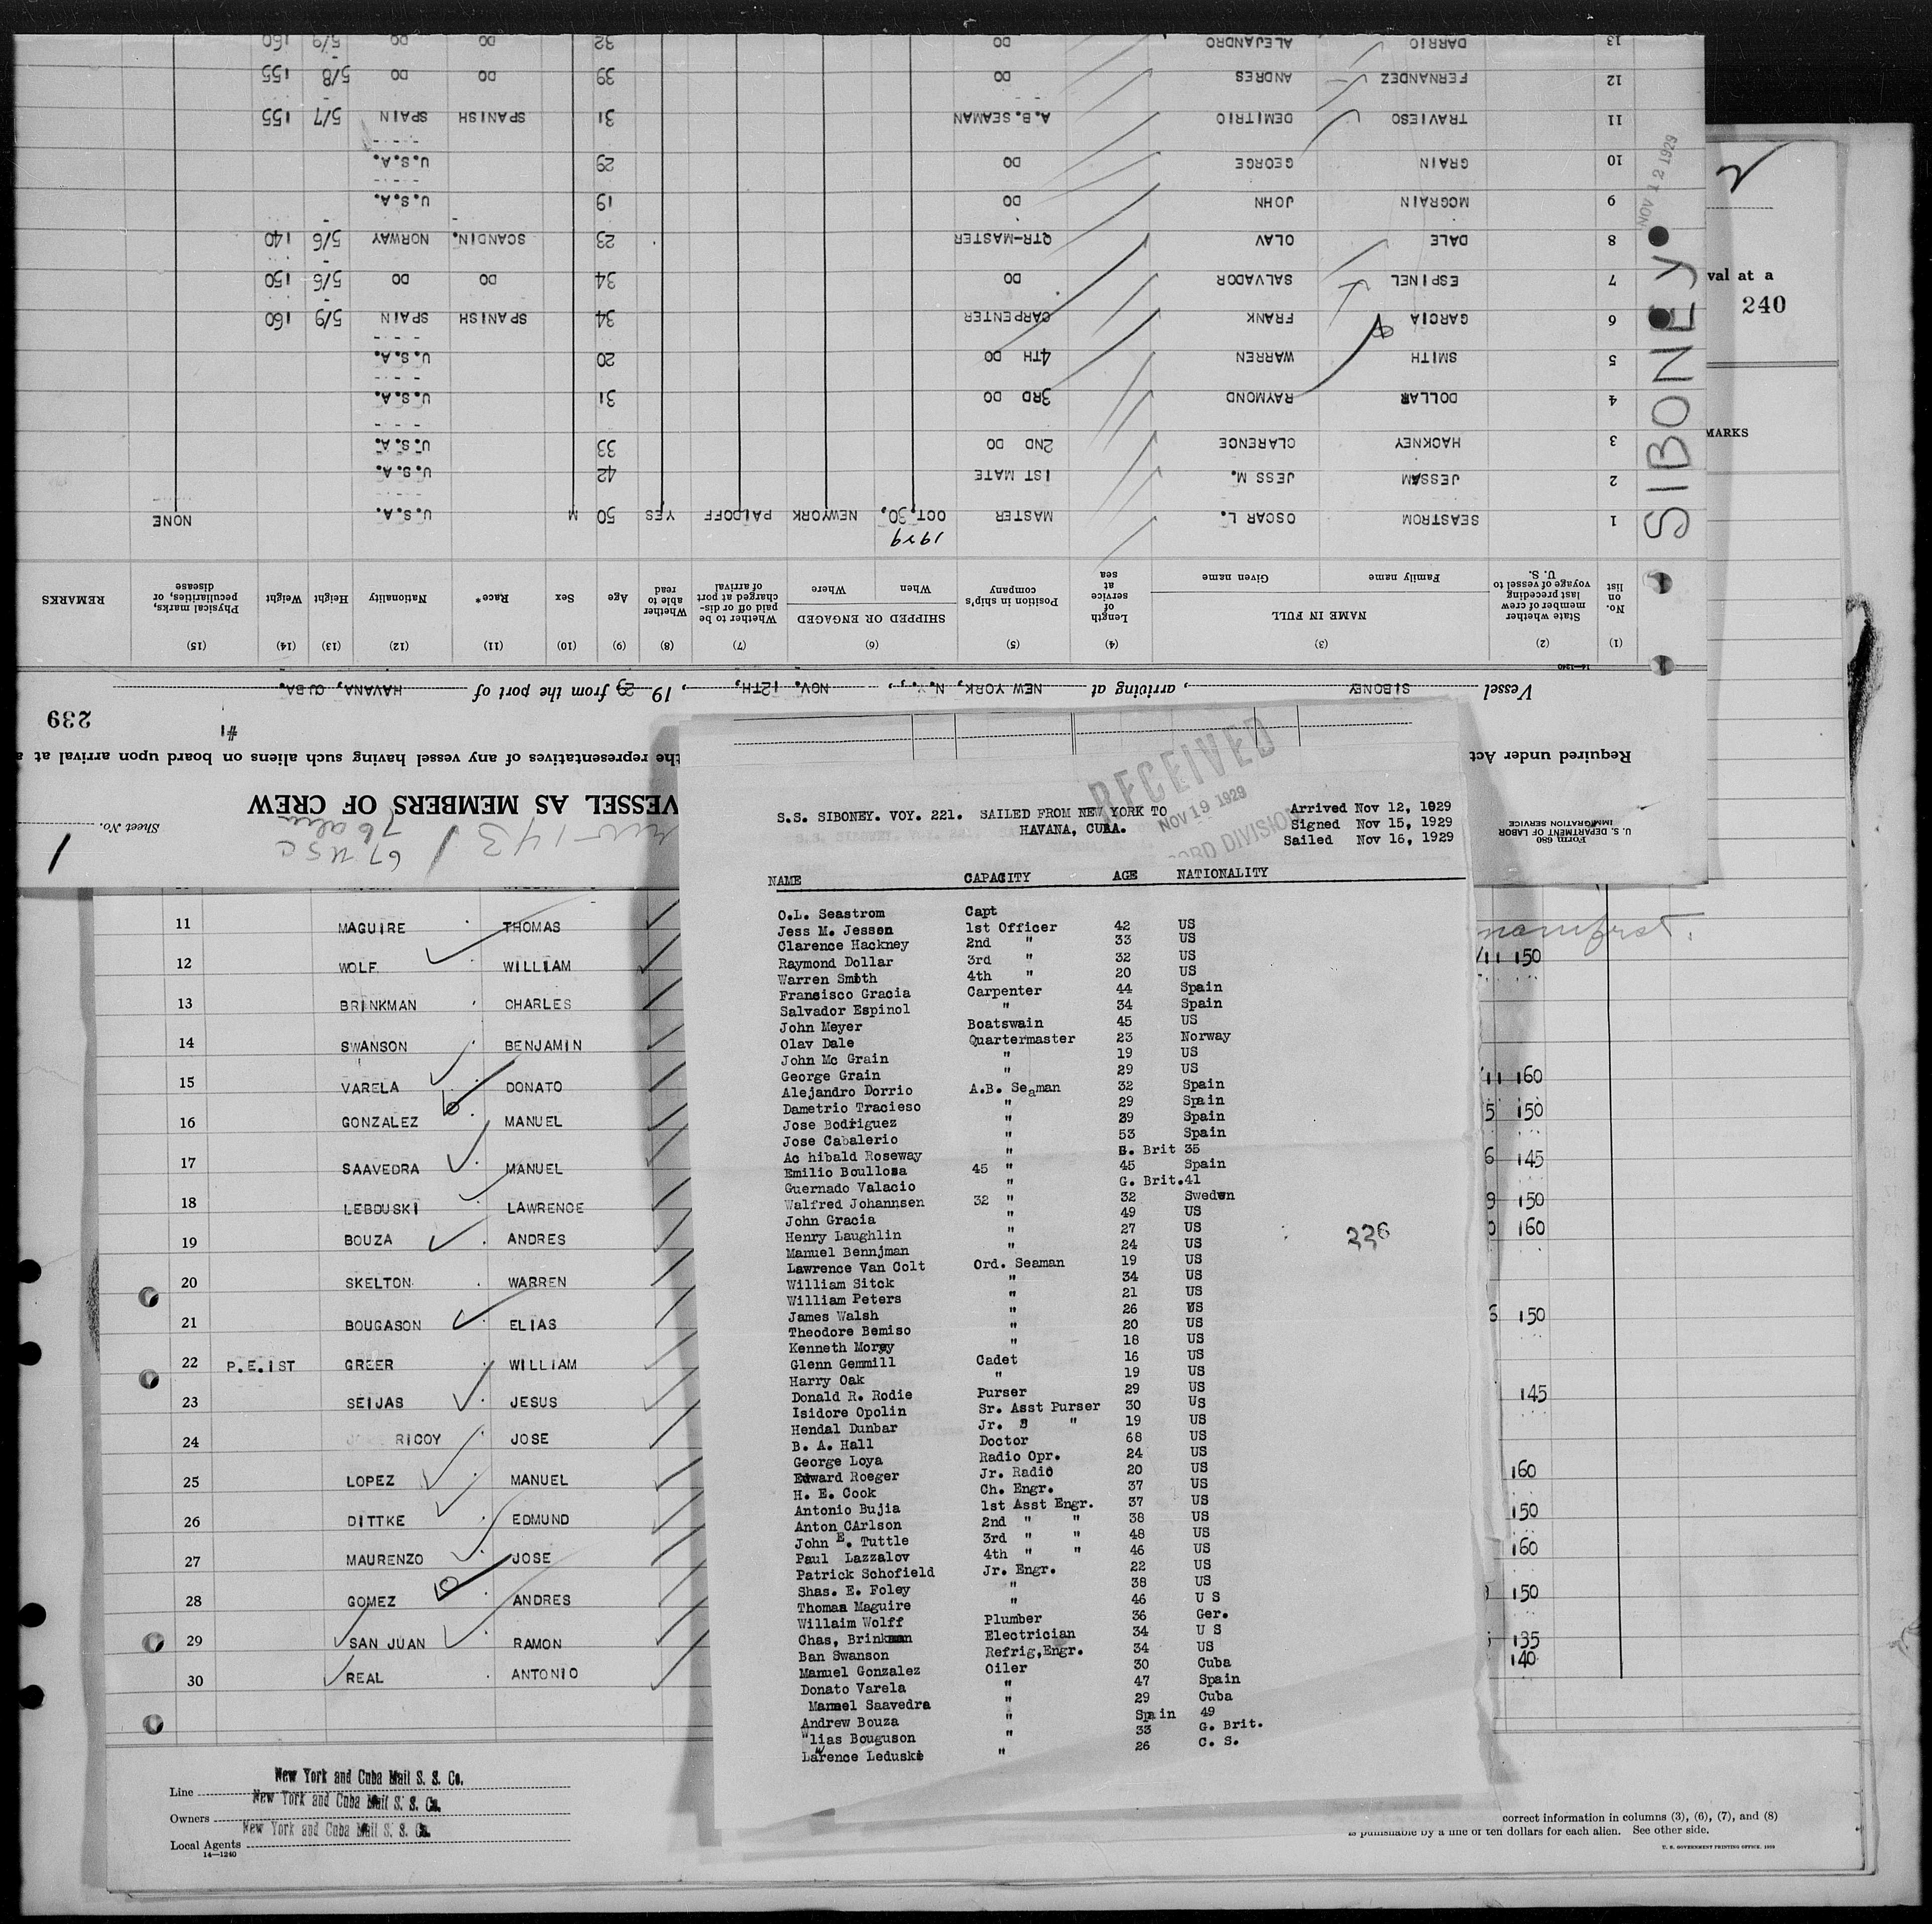 Sheet No. 1
VESSEL AS MEMBERS OF CREW
Required under Act
the representatives of any vessel having such aliens on board upon arrival at a
#1
239
Vessel SIBONEY, arriving at NEW YORK, N.Y., NOV. 12TH, 19 29 from the port of HAVANA, CUBA.
14—1240
(1) (2) (3) (4) (5) (6) (7) (8) (9) (10) (11) (12) (13) (14) (15)
No. on list
State whether member of crew last preceding voyage of vessel to U. S.
NAME IN FULL
Family name Given name
Length of service at sea
Position in ship's company
SHIPPED OR ENGAGED
When Where
Whether to be paid off or discharged at port of arrival
Whether able to read
Age Sex Race* Nationality Height Weight
Physical marks, peculiarities, or disease
REMARKS
1929
1 SEASTROM OSCAR L. MASTER OCT.30, NEWYORK PAIDOFF YES 50 M U.S.A. NONE
2 JESSAM JESS M. 1ST MATE 42 U.S.A.
3 HACKNEY CLARENCE 2ND DO 33 U.S.A.
4 DOLLAR RAYMOND 3RD DO 31 U.S.A.
5 SMITH WARREN 4TH DO 20 U.S.A.
6 GARCIA FRANK CARPENTER 34 SPANISH SPAIN 5/9 160
7 ESPINEL SALVADOR DO 34 DO DO 5/6 150
8 DALE OLAV QTR-MASTER 23 SCANDIN. NORWAY 5/6 140
9 MCGRAIN JOHN DO 19 U.S.A.
10 GRAIN GEORGE DO 29 U.S.A.
11 TRAVIESO DEMITRIO A.B.SEAMAN 31 SPANISH SPAIN 5/7 155
12 FERNANDEZ ANDRES DO 39 DO DO 5/8 155
13 DARRIO ALEJANDRO DO 32 DO DO 5/9 160
SIBONEY
NOV 12 1929
2
val at a
240
MARKS
Form 680
U. S. DEPARTMENT OF LABOR
IMMIGRATION SERVICE
143
67 USC
76 alien
RECEIVED
NOV 19 1929
ORD DIVISION
S.S. SIBONEY. VOY. 221. SAILED FROM NEW YORK TO
HAVANA, CUBA.
Arrived Nov 12, 1929
Signed Nov 15, 1929
Sailed Nov 16, 1929
NAME CAPACITY AGE NATIONALITY
O.L. Seastrom Capt
Jess M. Jessen 1st Officer 42 US
Clarence Hackney 2nd " 33 US
Raymond Dollar 3rd " 32 US
Warren Smith 4th " 20 US
Francisco Gracia Carpenter 44 Spain
Salvador Espinol " 34 Spain
John Meyer Boatswain 45 US
Olav Dale Quartermaster 23 Norway
John Mc Grain " 19 US
George Grain " 29 US
Alejandro Dorrio A.B. Seaman 32 Spain
Dametrio Tracieso " 29 Spain
Jose Bodriguez " 39 Spain
Jose Cabalerio " 53 Spain
Ac hibald Roseway " G. Brit 35
Emilio Boullosa 45 " 45 Spain
Guernado Valacio " G. Brit.41
Walfred Johannsen 32 " 32 Sweden
John Gracia " 49 US
Henry Laughlin " 27 US
Manuel Bennjman " 24 US
Lawrence Van Colt Ord. Seaman 19 US
William Sitck " 34 US
William Peters " 21 US
James Walsh " 26 US
Theodore Bemiso " 20 US
Kenneth Morey " 18 US
Glenn Gemmill Cadet 16 US
Harry Oak " 19 US
Donald R. Rodie Purser 29 US
Isidore Opolin Sr. Asst Purser 30 US
Hendal Dunbar Jr. S " 19 US
B. A. Hall Doctor 68 US
George Loya Radio Opr. 24 US
Edward Roeger Jr. Radio 20 US
H. E. Cook Ch. Engr. 37 US
Antonio Bujia 1st Asst Engr. 37 US
Anton CArlson 2nd " " 38 US
John E. Tuttle 3rd " " 48 US
Paul Lazzalov 4th " " 46 US
Patrick Schofield Jr. Engr. 22 US
Shas. E. Foley " 38 US
Thomas Maguire " 46 U S
Willaim Wolff Plumber 36 Ger.
Chas, Brinkman Electrician 34 U S
Ban Swanson Refrig,Engr. 34 US
Manuel Gonzalez Oiler 30 Cuba
Donato Varela " 47 Spain
Manuel Saavedra " 29 Cuba
Andrew Bouza " Spain 49
"lias Bouguson " 33 G. Brit.
Lawrence Leduski " 26 C. S.
226
manifest.
11 MAGUIRE THOMAS
12 WOLF WILLIAM 11 150
13 BRINKMAN CHARLES
14 SWANSON BENJAMIN
15 VARELA DONATO 11 160
16 GONZALEZ MANUEL 5 150
17 SAAVEDRA MANUEL 6 145
18 LEBOUSKI LAWRENCE 9 150
19 BOUZA ANDRES 0 160
20 SKELTON WARREN
21 BOUGASON ELIAS 6 150
22 P.E.1ST GREER WILLIAM
23 SEIJAS JESUS 145
24 RICOY JOSE
25 LOPEZ MANUEL 160
26 DITTKE EDMUND 150
27 MAURENZO JOSE 160
28 GOMEZ ANDRES 150
29 SAN JUAN RAMON 135
30 REAL ANTONIO 140
Line New York and Cuba Mail S. S. Co.
Owners New York and Cuba Mail S. S. Co.
Local Agents New York and Cuba Mail S. S. Co.
14—1240
correct information in columns (3), (6), (7), and (8)
is punishable by a fine of ten dollars for each alien. See other side.
U. S. GOVERNMENT PRINTING OFFICE. 1929